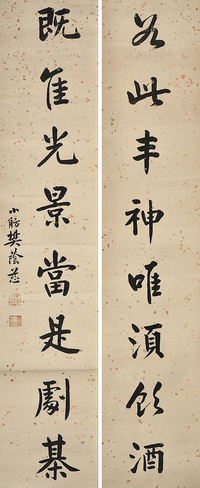 若此丰神唯須飲酒
既佳光景當是劇棊
小舫樊蔭蓀